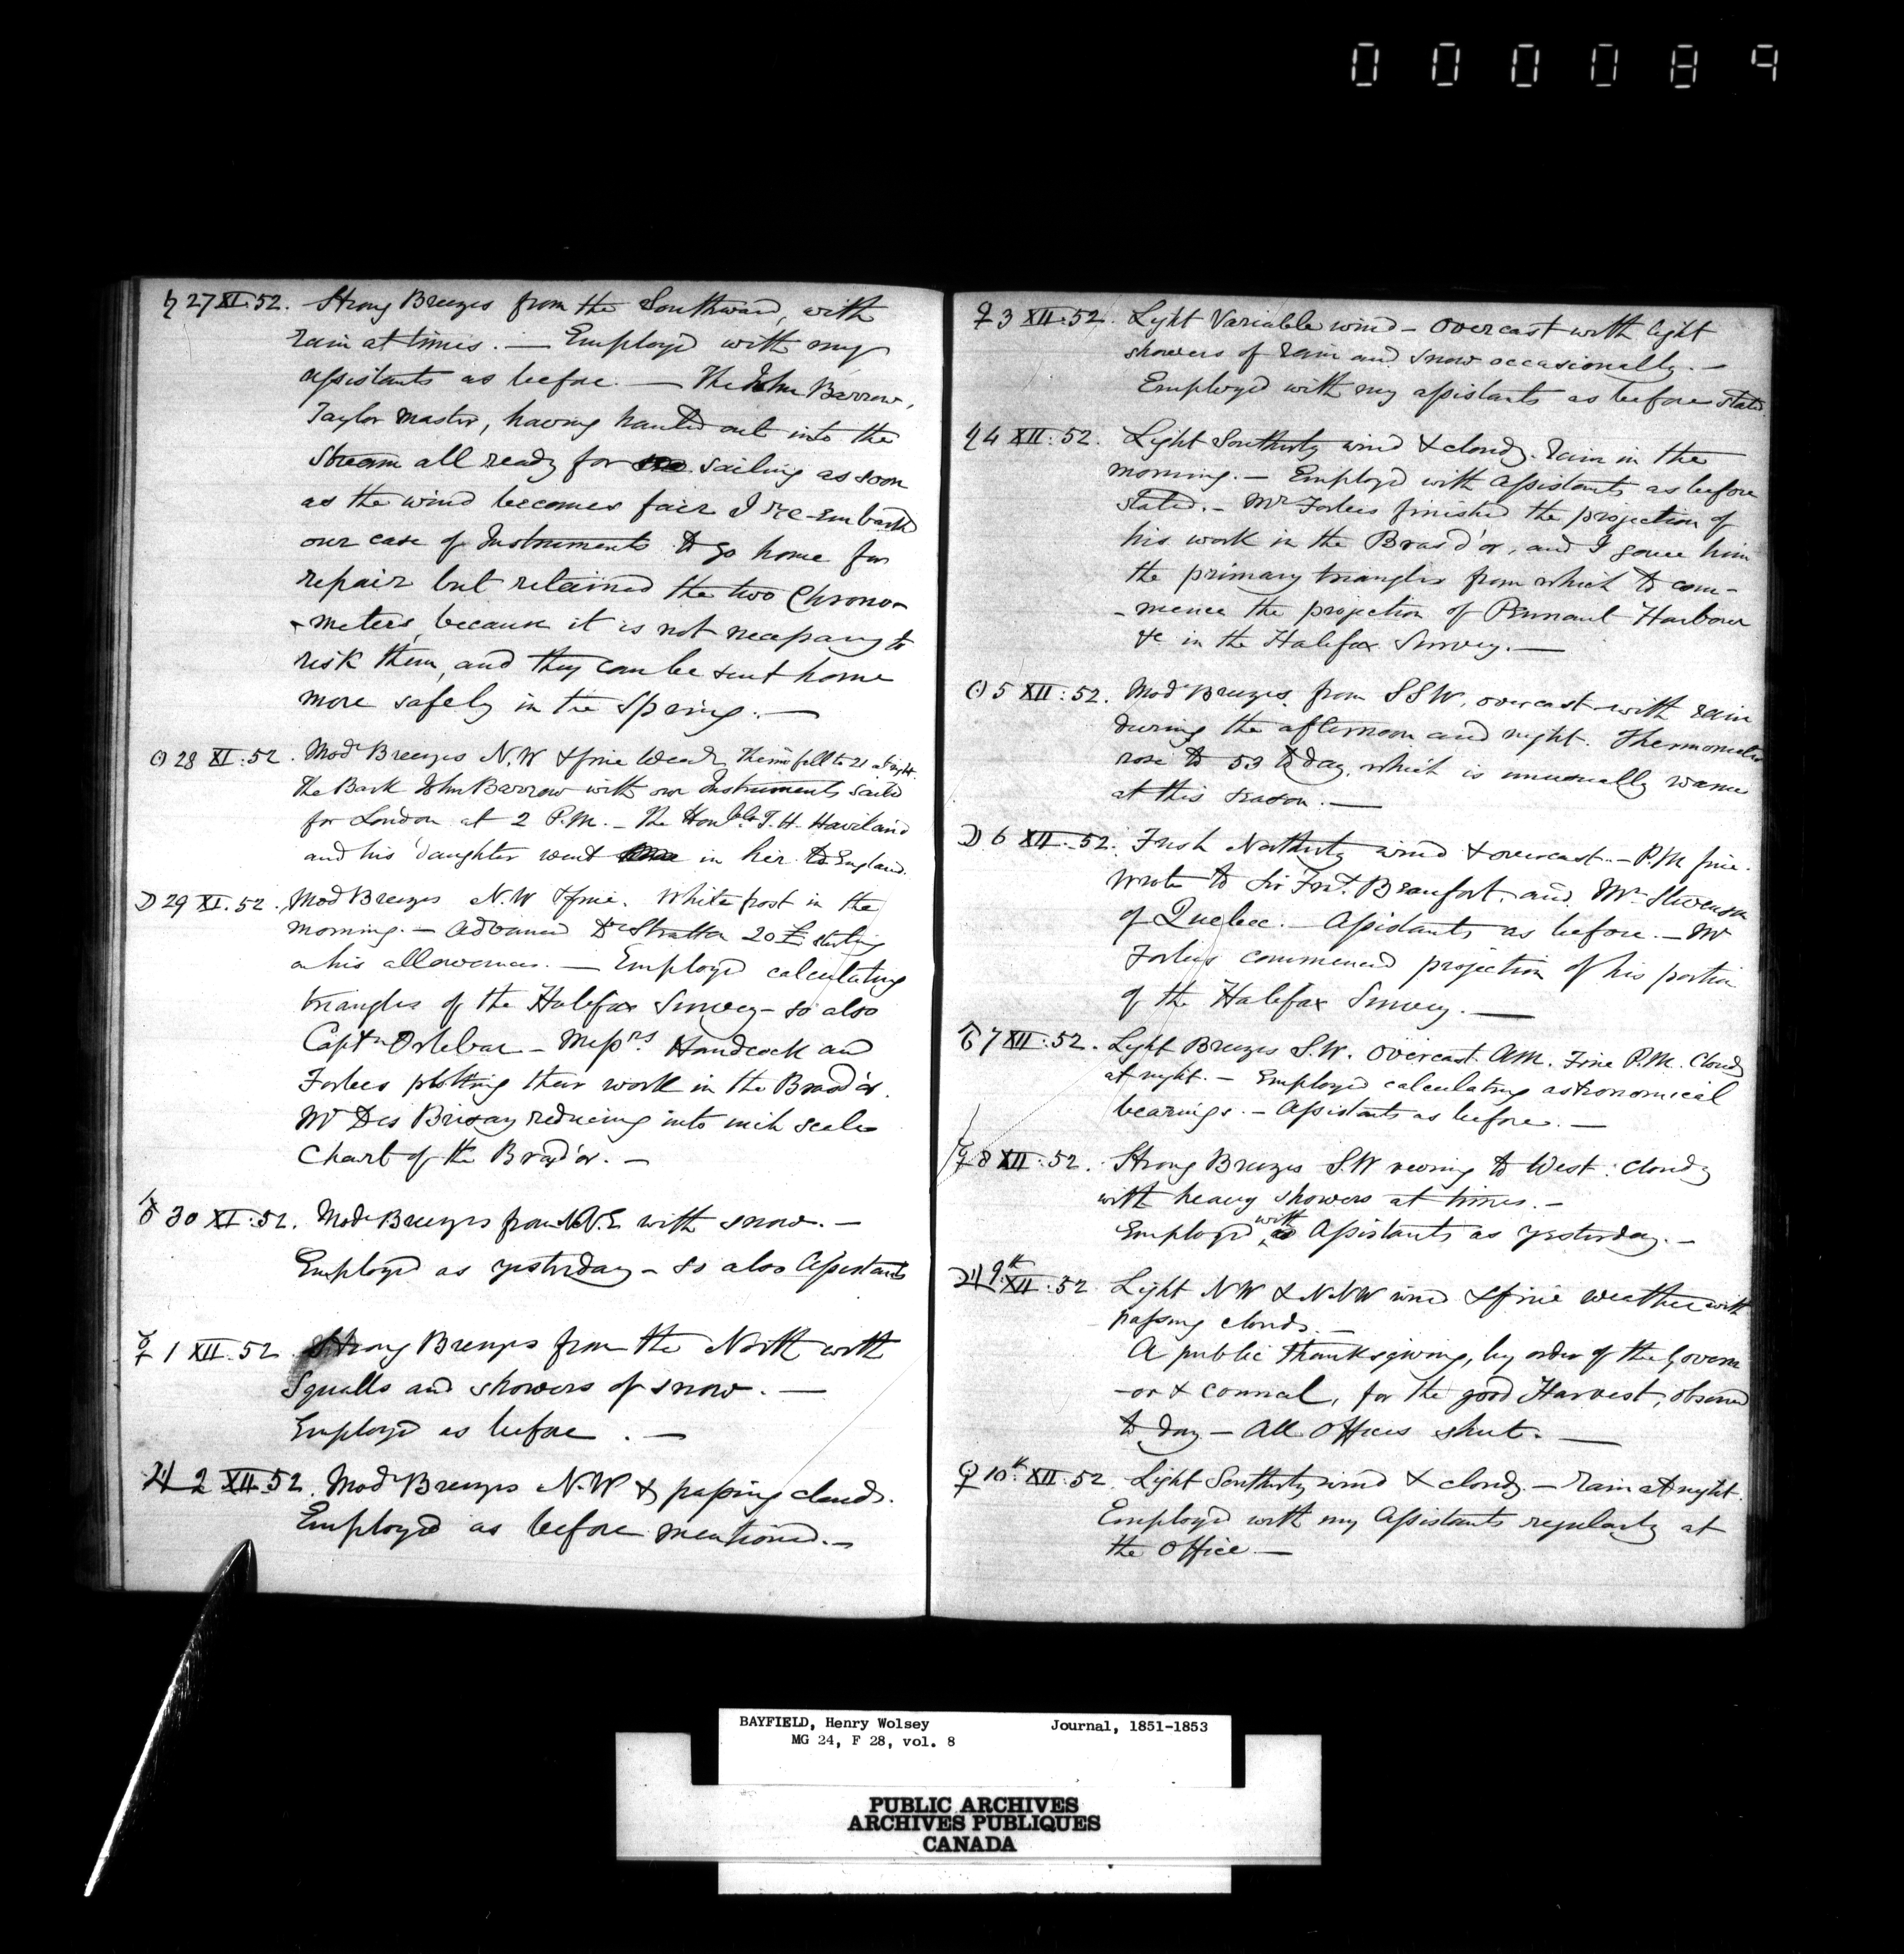 000089
♄ 27 XI:52. Strong Breezes from the Southward, with
rain at times. — Employed with my
assistants as before. — The John Barrow,
Taylor Master, having hauled out into the
Stream all ready for sailing as soon
as the wind becomes fair I re-embarked
our case of Instruments to go home for
repair but retained the two Chrono-
-meters, because it is not necessary to
risk them, and they can be sent home
more safely in the Spring. —
☉ 28 XI:52. Modr Breezes N.W & fine Wear. Therm fell to 21 at night.
The Bark John Barrow with our Instruments sailed
for London at 2 P.M. — The Honble T. H. Haviland
and his daughter went in her to England.
☽ 29 XI.52. Mod Breezes N.W & fine. White frost in the
morning. — Advanced Dr Stratton 20 £ sterling
on his allowances. — Employed calculating
triangles of the Halifax Survey — so also
Captn Orlebar — Messrs Handcock and
Forbes plotting their work in the Bras d'or.
Mr Des Brisay reducing into inch scale
Chart of the Bras d'or. —
♂ 30 XI:52. Modr Breezes from N.E with snow. —
Employed as yesterday — so also Assistants
☿ 1 XII.52. Strong Breezes from the North with
Squalls and showers of snow. —
Employed as before. —
♃ 2 XII.52. Modr Breezes N.W & passing clouds.
Employed as before mentioned. —
♀ 3 XII.52. Light Variable wind — overcast with light
showers of rain and snow occasionally. —
Employed with my assistants as before stated.
♄ 4 XII:52. Light Southerly wind & cloudy. Rain in the
morning. — Employed with Assistants as before
stated. — Mr Forbes finished the projection of
his work in the Bras d'or, and I gave him
the primary triangles from which to com-
-mence the projection of Pennant Harbour
&c in the Halifax Survey. —
☉ 5 XII:52. Modr Breezes from SSW, overcast with rain
during the afternoon and night. Thermometer
rose to 53 to day, which is unusually warm
at this season. —
☽ 6 XII.52. Fresh Northerly wind & overcast. — P.M fine.
Wrote to Sir Frs. Beaufort, and Mr Stevenson
of Quebec. — Assistants as before. — Mr
Forbes commenced projection of his portion
of the Halifax Survey. —
♂ 7 XII:52. Light Breezes S.W. Overcast AM. Fine P.M. Cloudy
at night. — Employed calculating astronomical
bearings. — Assistants as before. —
☿ 8 XII:52. Strong Breezes S.W veering to West: cloudy
with heavy showers at times. —
Employed with Assistants as yesterday. —
♃ 9th XII:52 Light NW & NNW wind & fine weather with
passing clouds. —
A public Thanksgiving, by order of the Govern
-or & council, for the good Harvest, observed
to day — All Offices shut. —
♀ 10th XII:52. Light Southerly wind & cloudy. — Rain at night.
Employed with my Assistants regularly at
the Office —
BAYFIELD, Henry Wolsey Journal, 1851-1853
MG 24, F 28, vol. 8
PUBLIC ARCHIVES
ARCHIVES PUBLIQUES
CANADA